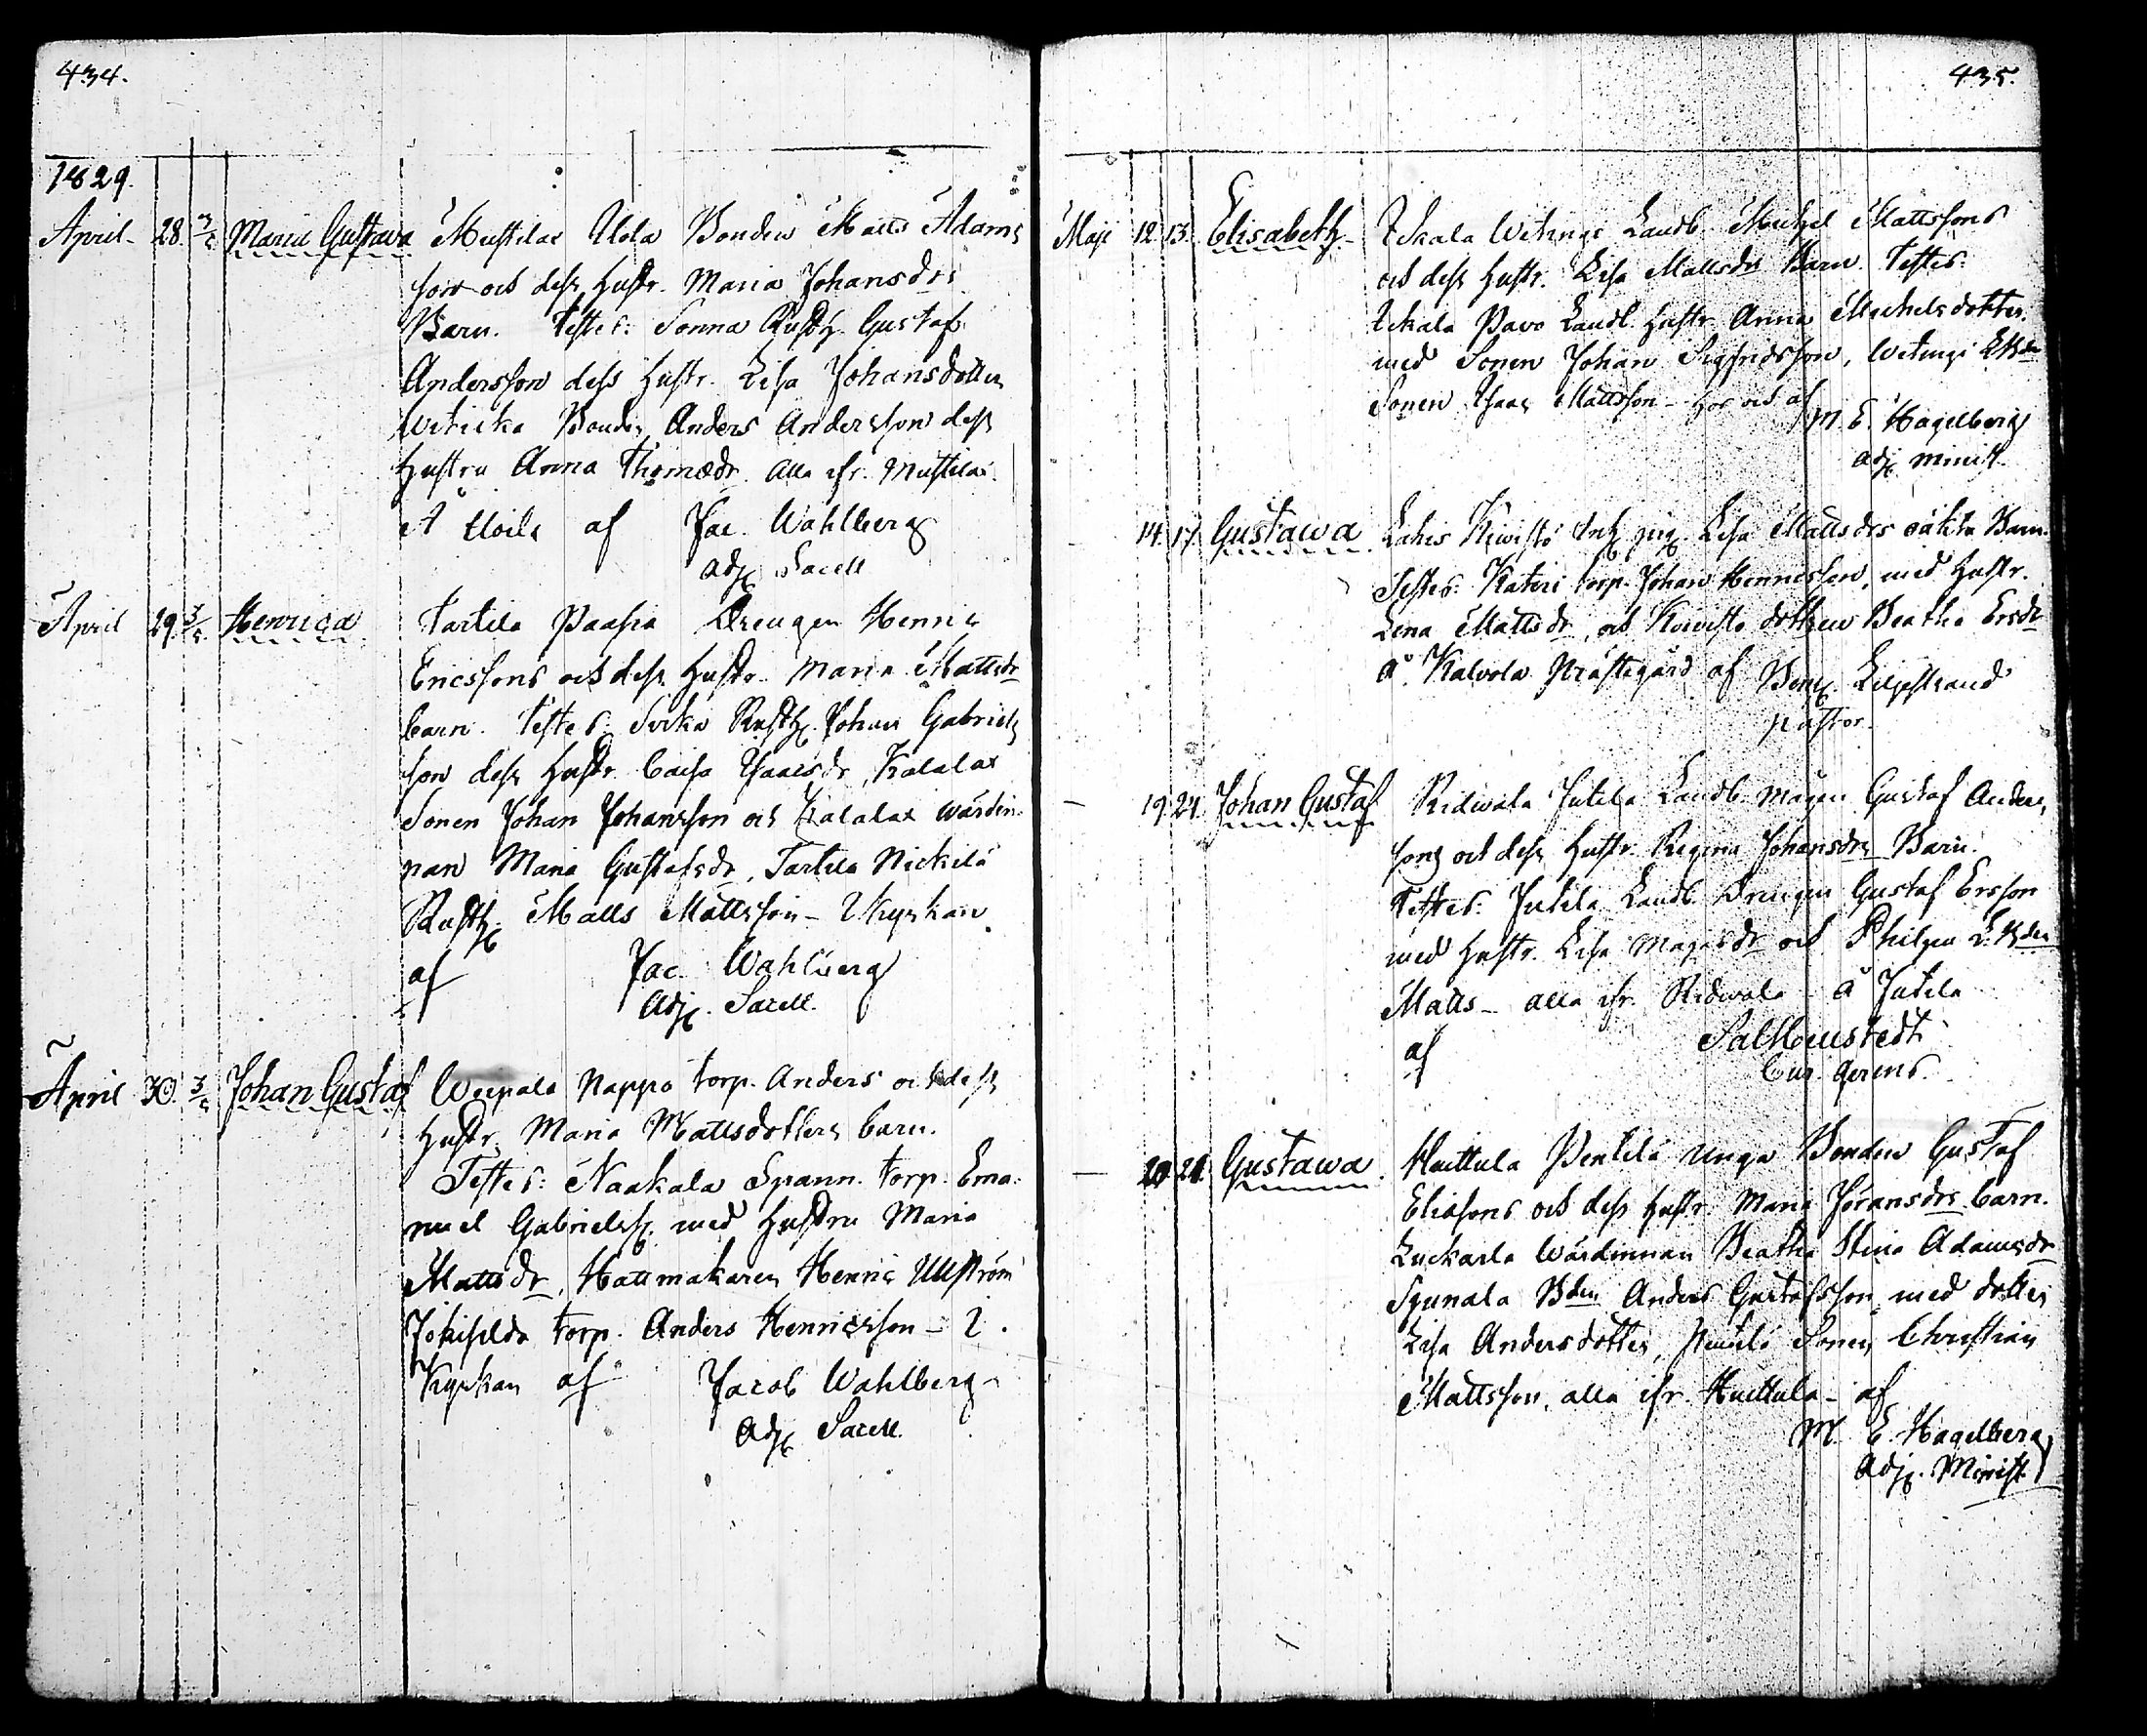 434.
1829.
April 28. 3/5 Maria Gustava Mustilax Uola Bonden Matts Adams
son och dess Hustr. Maria Johansdrs
Barn. Testes: Sonna Rusth. Gustaf
Andersson dess Hustr. Lisa Johansdotter
Witicka Bonden Anders Andersson dess
Hustru Anna Thomædr. alla ifr. Mustilax
Å Uoila af Jac. Wahlberg
Adj. Sacell
April 29. 3/5 Henrica Tartila Paasia Drengen Henric
Ericssons och dess Hustr. Maria Mattsdr
barn. Testes: Rusth. Johan Gabriels
son dess Hustr. Caisa Isaacsdr, Kalalax
Sonen Johan Johansson och Kalalax wärdin-
nan Maria Gustafsdr, Tartila Nickilä
Rusth. Matts Mattsson - I Kyrkan
af Jac. Wahlberg
Adj. Sacell.
April 30. 3/5 Johan Gustaf Weepala Nappo torp. Anders och dess
Hustr. Maria Mattsdotters barn.
Testes: Naakala Spann. torp. Ema-
nuel Gabrielss. med Hustru Maria
Mattsdr, Hattmakaren Henric Ullström
torp. Anders Henricsson - I
Kyrkan af Jacob Wahlberg
Adj. Sacell.
435.
Maji 12. 13. Elisabeth Ickala Landb. Michel Mattssons
och dess Hustr. Lisa Mattsdrs Barn. Testes:
Ickala Pavo Landb. Hustr. Anna Michelsdotter
med Sonen Johan Sigfridsson, Bden
Sonen Isaac Mattsson - hos och af
M. E. Hagelberg
adj. minist.
14. 17. Gustawa Lahis Kiwistö pig. Lisa Mattsdrs oäkta Barn.
Testes: Kateri torp. Johan Henricsson, med Hustr.
Lena Mattsdr, och Kiwistö dottren Beatha Ersdr
å Kalvola Prästegård af Benj. Liljestrand
pastor.
19. 24. Johan Gustaf Ridwala Jutila Landb. mågen Gustaf Anders
sons och dess Hustr. Regina Johansdrs Barn.
Testes: Jutila Landb. Drengen Gustaf Ersson
med Hustr. Lisa och L. Bden
Matts - alla ifr. Ridwala - å Jutila
af Sal. Monstedt
Cur. gerens.
20. 21. Gustawa Huittula Pentilä unga Bonden Gustaf
Eliasons och dess Hustr. Maria Jöransdrs barn.
Luckarla Wärdinnan Beatha Stina Adamsdr
Spunala Bden Anders Gustafsson med dotter
Lisa Andersdotter, Sonen Christian
Mattsson, alla ifr. Huittula - af
M. E. Hagelberg
Adj. Minist.